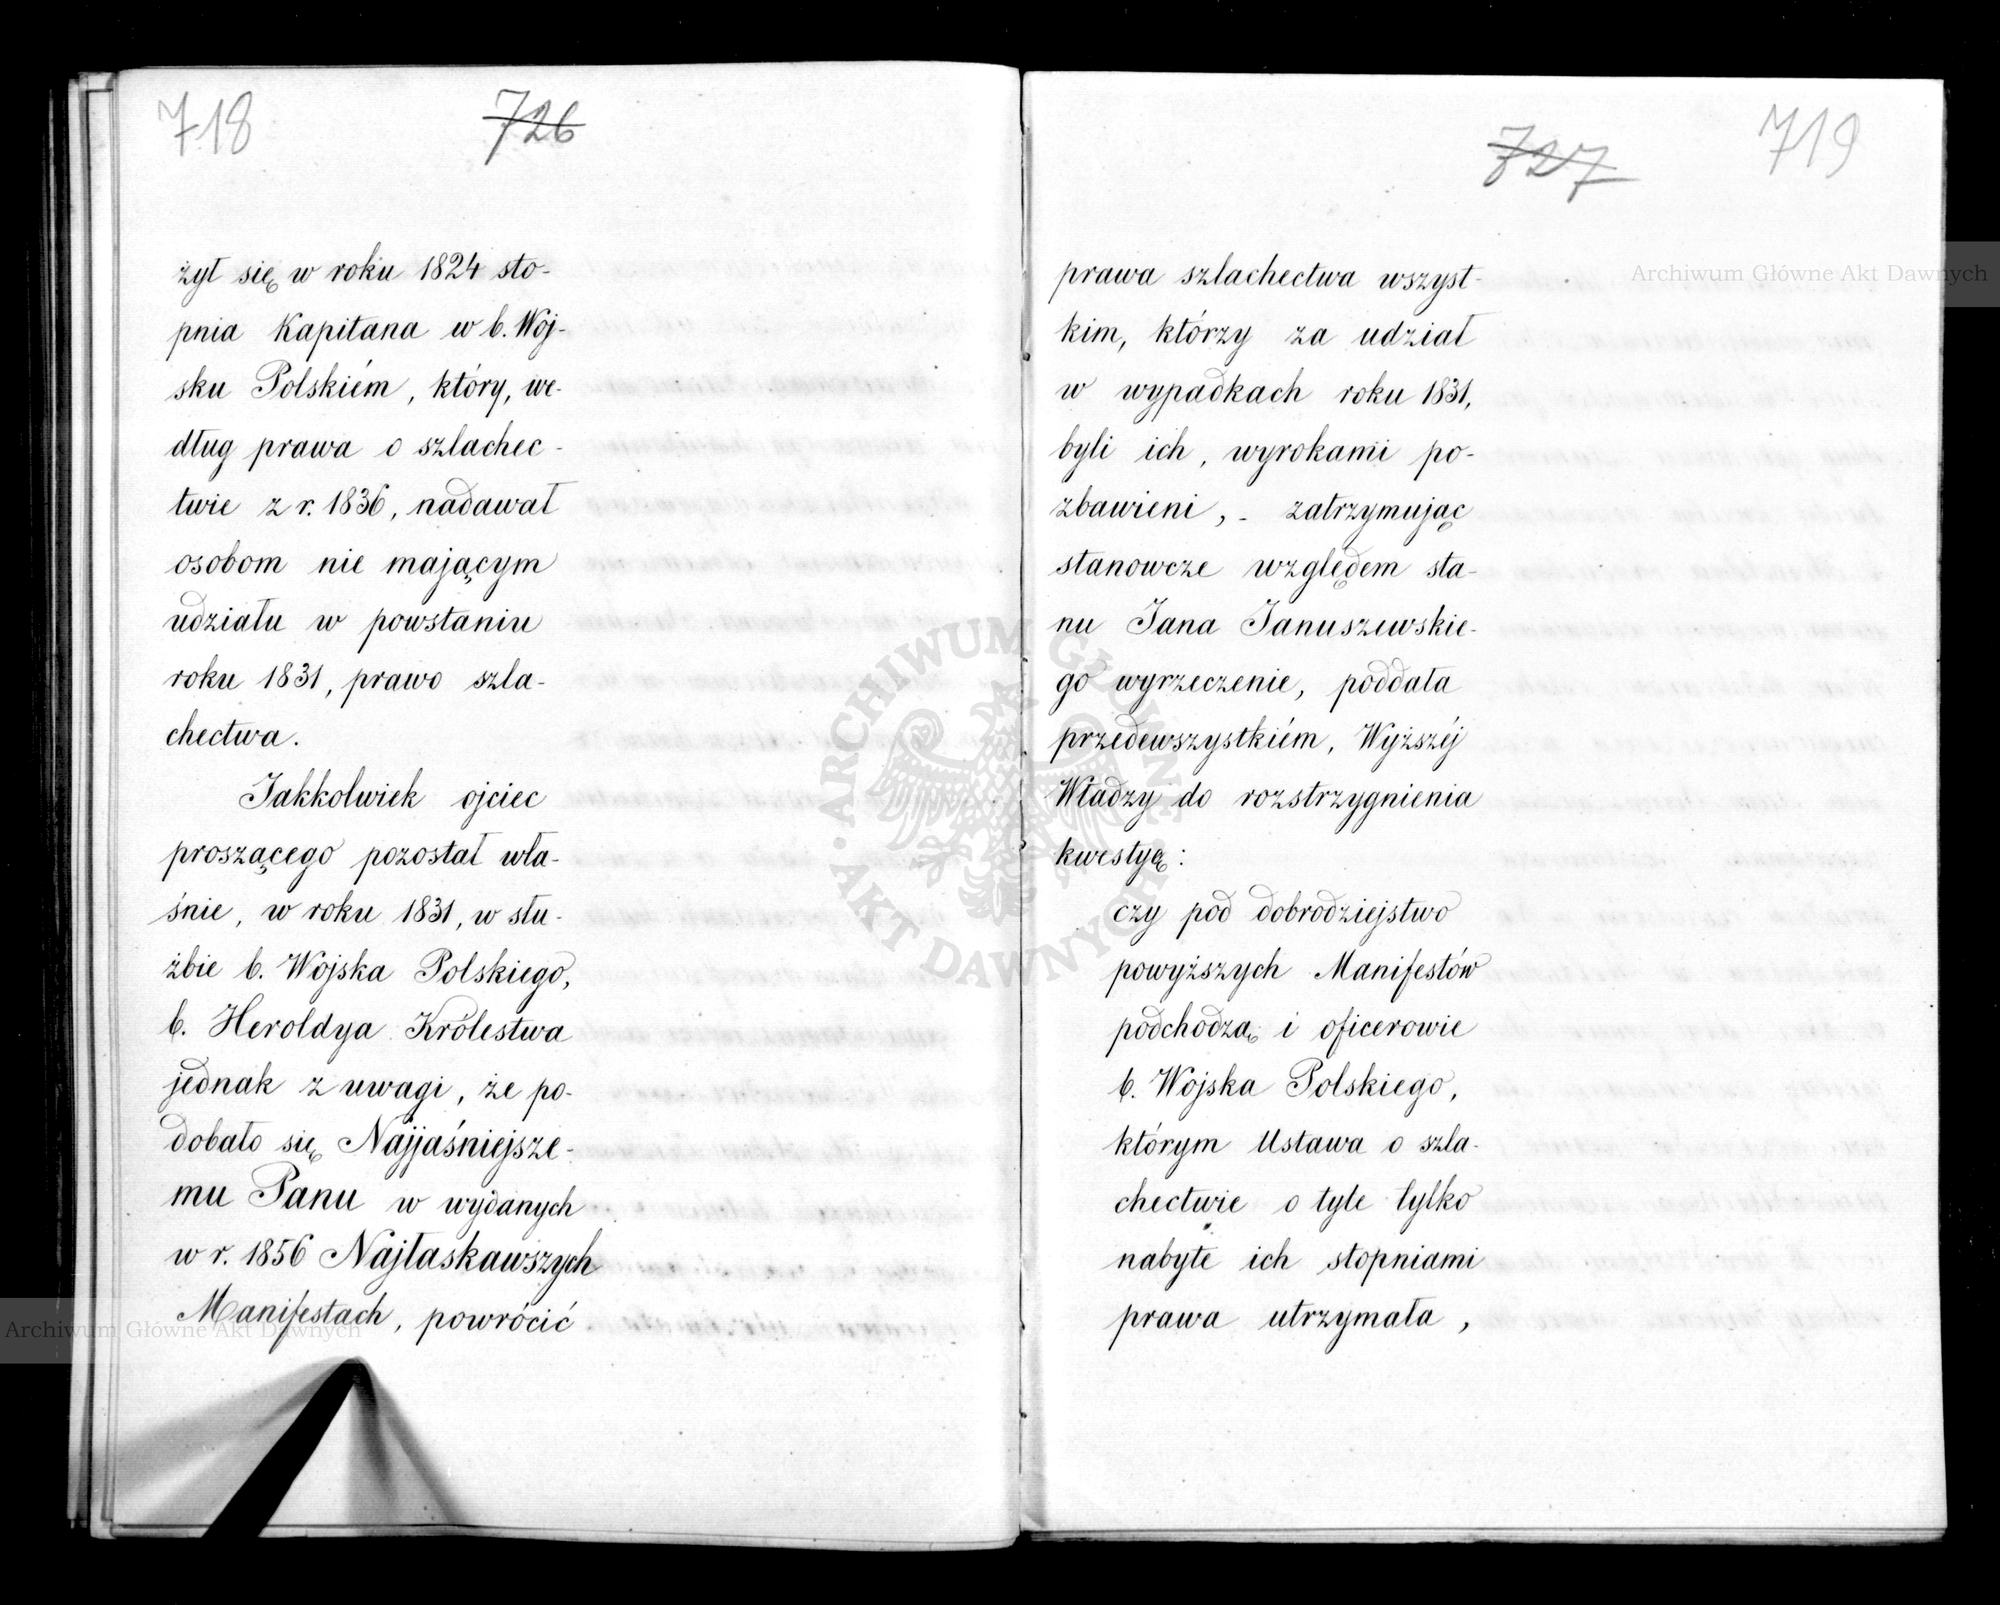 718
726
żył się w roku 1824 sto-
pnia Kapitana w b. Woj-
sku Polskiém, który, we-
dług prawa o szlachec-
twie z r. 1836, nadawał
osobom nie mającym
udziału w powstaniu
roku 1831, prawo szla-
chectwa.
Jakkolwiek ojciec
proszącego pozostał wła-
śnie, w roku 1831, w słu-
żbie b. Wojska Polskiego,
b. Heroldya Królestwa
jednak z uwagi, że po-
dobało się Najjaśniejsze-
mu Panu w wydanych
w r. 1856 Najłaskawszych
Manifestach, powrócić
727
719
prawa szlachectwa wszyst-
kim, którzy za udział
w wypadkach roku 1831,
byli ich, wyrokami po-
zbawieni, - zatrzymując
stanowcze względem sta-
nu Jana Januszewskie-
go wyrzeczenie, poddała
przedewszystkiém, Wyższéj
Władzy do rozstrzygnienia
kwestyą:
czy pod dobrodziejstwo
powyższych Manifestów
podchodzą i oficerowie
b. Wojska Polskiego,
którym Ustawa o szla-
chectwie o tyle tylko
nabyte ich stopniami
prawa utrzymała,
Archiwum Główne Akt Dawnych
Archiwum Główne Akt Dawnych
ARCHIWUM GŁÓWNE · AKT DAWNYCH ·